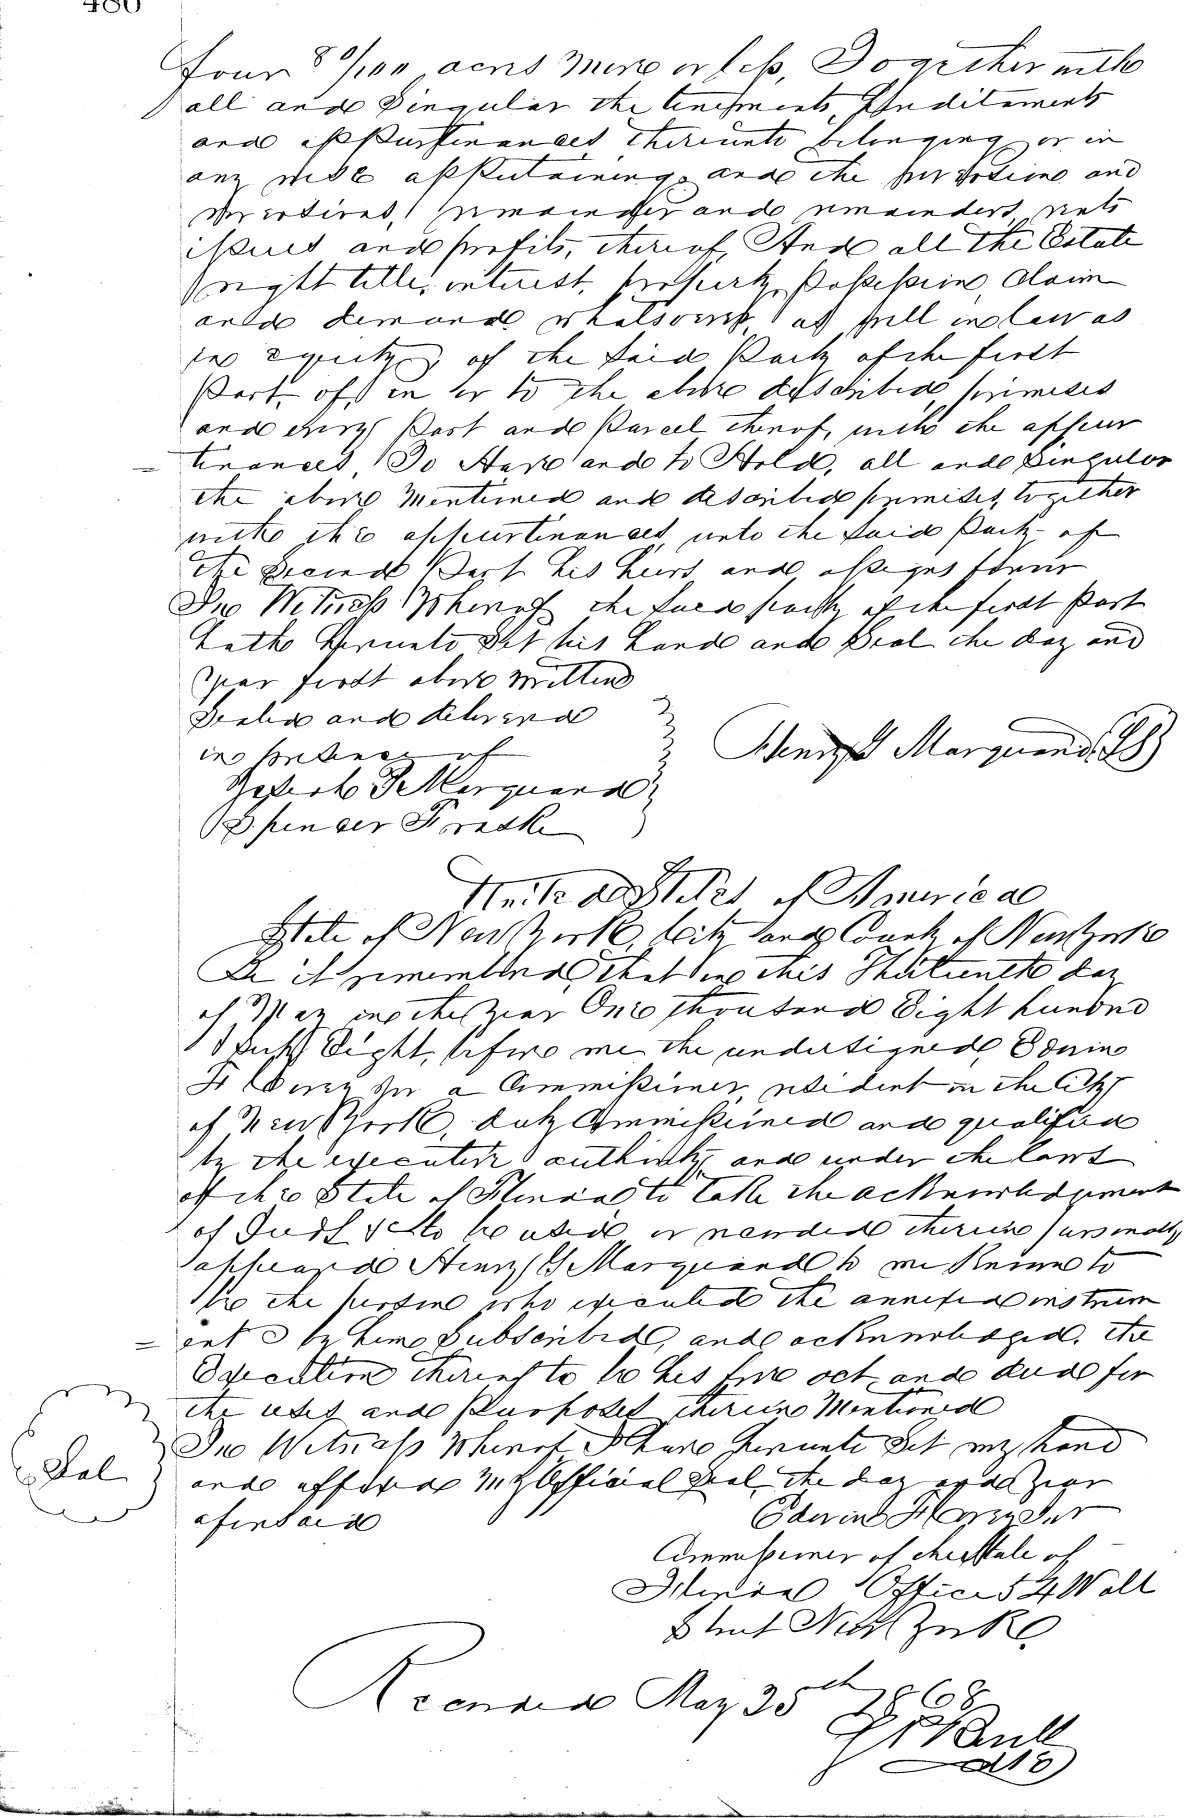 480
four 80/100 acres more or less, Together with
all and Singular the tenements, Hereditaments
and appurtenances thereunto belonging or in
any wise appertaining, and the reversion and
reversions, remainder and remainders, rents
issues and profits, thereof, And all the Estate
right title, interest, property, Possession, Claim
and demand whatsoever, as well in law as
in equity, of the Said Party of the first
Part, of, in or to the above described premises
and every Part and Parcel thereof, with the appur
tenances, To Have and to Hold, all and Singular
the above Mentioned and described premises, together
with the appurtenances, unto the Said Party of
the Second Part his heirs and assigns forever
In Witness Whereof, the Said party of the first Part
hath hereunto Set his hand and Seal the day and
year first above written
Sealed and delivered
in presence of
Henry G Marquand, (LS)
Joseph P Marquand
Spencer Trask
United States of America
State of New York, City and County of New York
Be it remembered, that on this Thirteenth day
of May in the year One thousand Eight hundred
Sixty Eight, before me the undersigned, Edwin
F Corey Jr a Commissioner, resident in the City
of New York, duly Commissioned and qualified
by the executive authority, and under the laws
of the State of Florida, to take the acknowledgement
of Deeds &c to be used or recorded therein personally
appeared Henry G Marquand to me Known to
be the person who executed the annexed instrum
ent by him Subscribed, and acknowledged, the
Execution thereof to be his free act, and deed for
the uses and Purposes therein Mentioned
In Witness Whereof I have hereunto Set my hand
Seal
and affixed my Official Seal, the day and year
aforesaid
Edwin F Corey Jr
Commissioner of the State of
Florida Office 54 Wall
Street New York
Recorded May 25th 1868